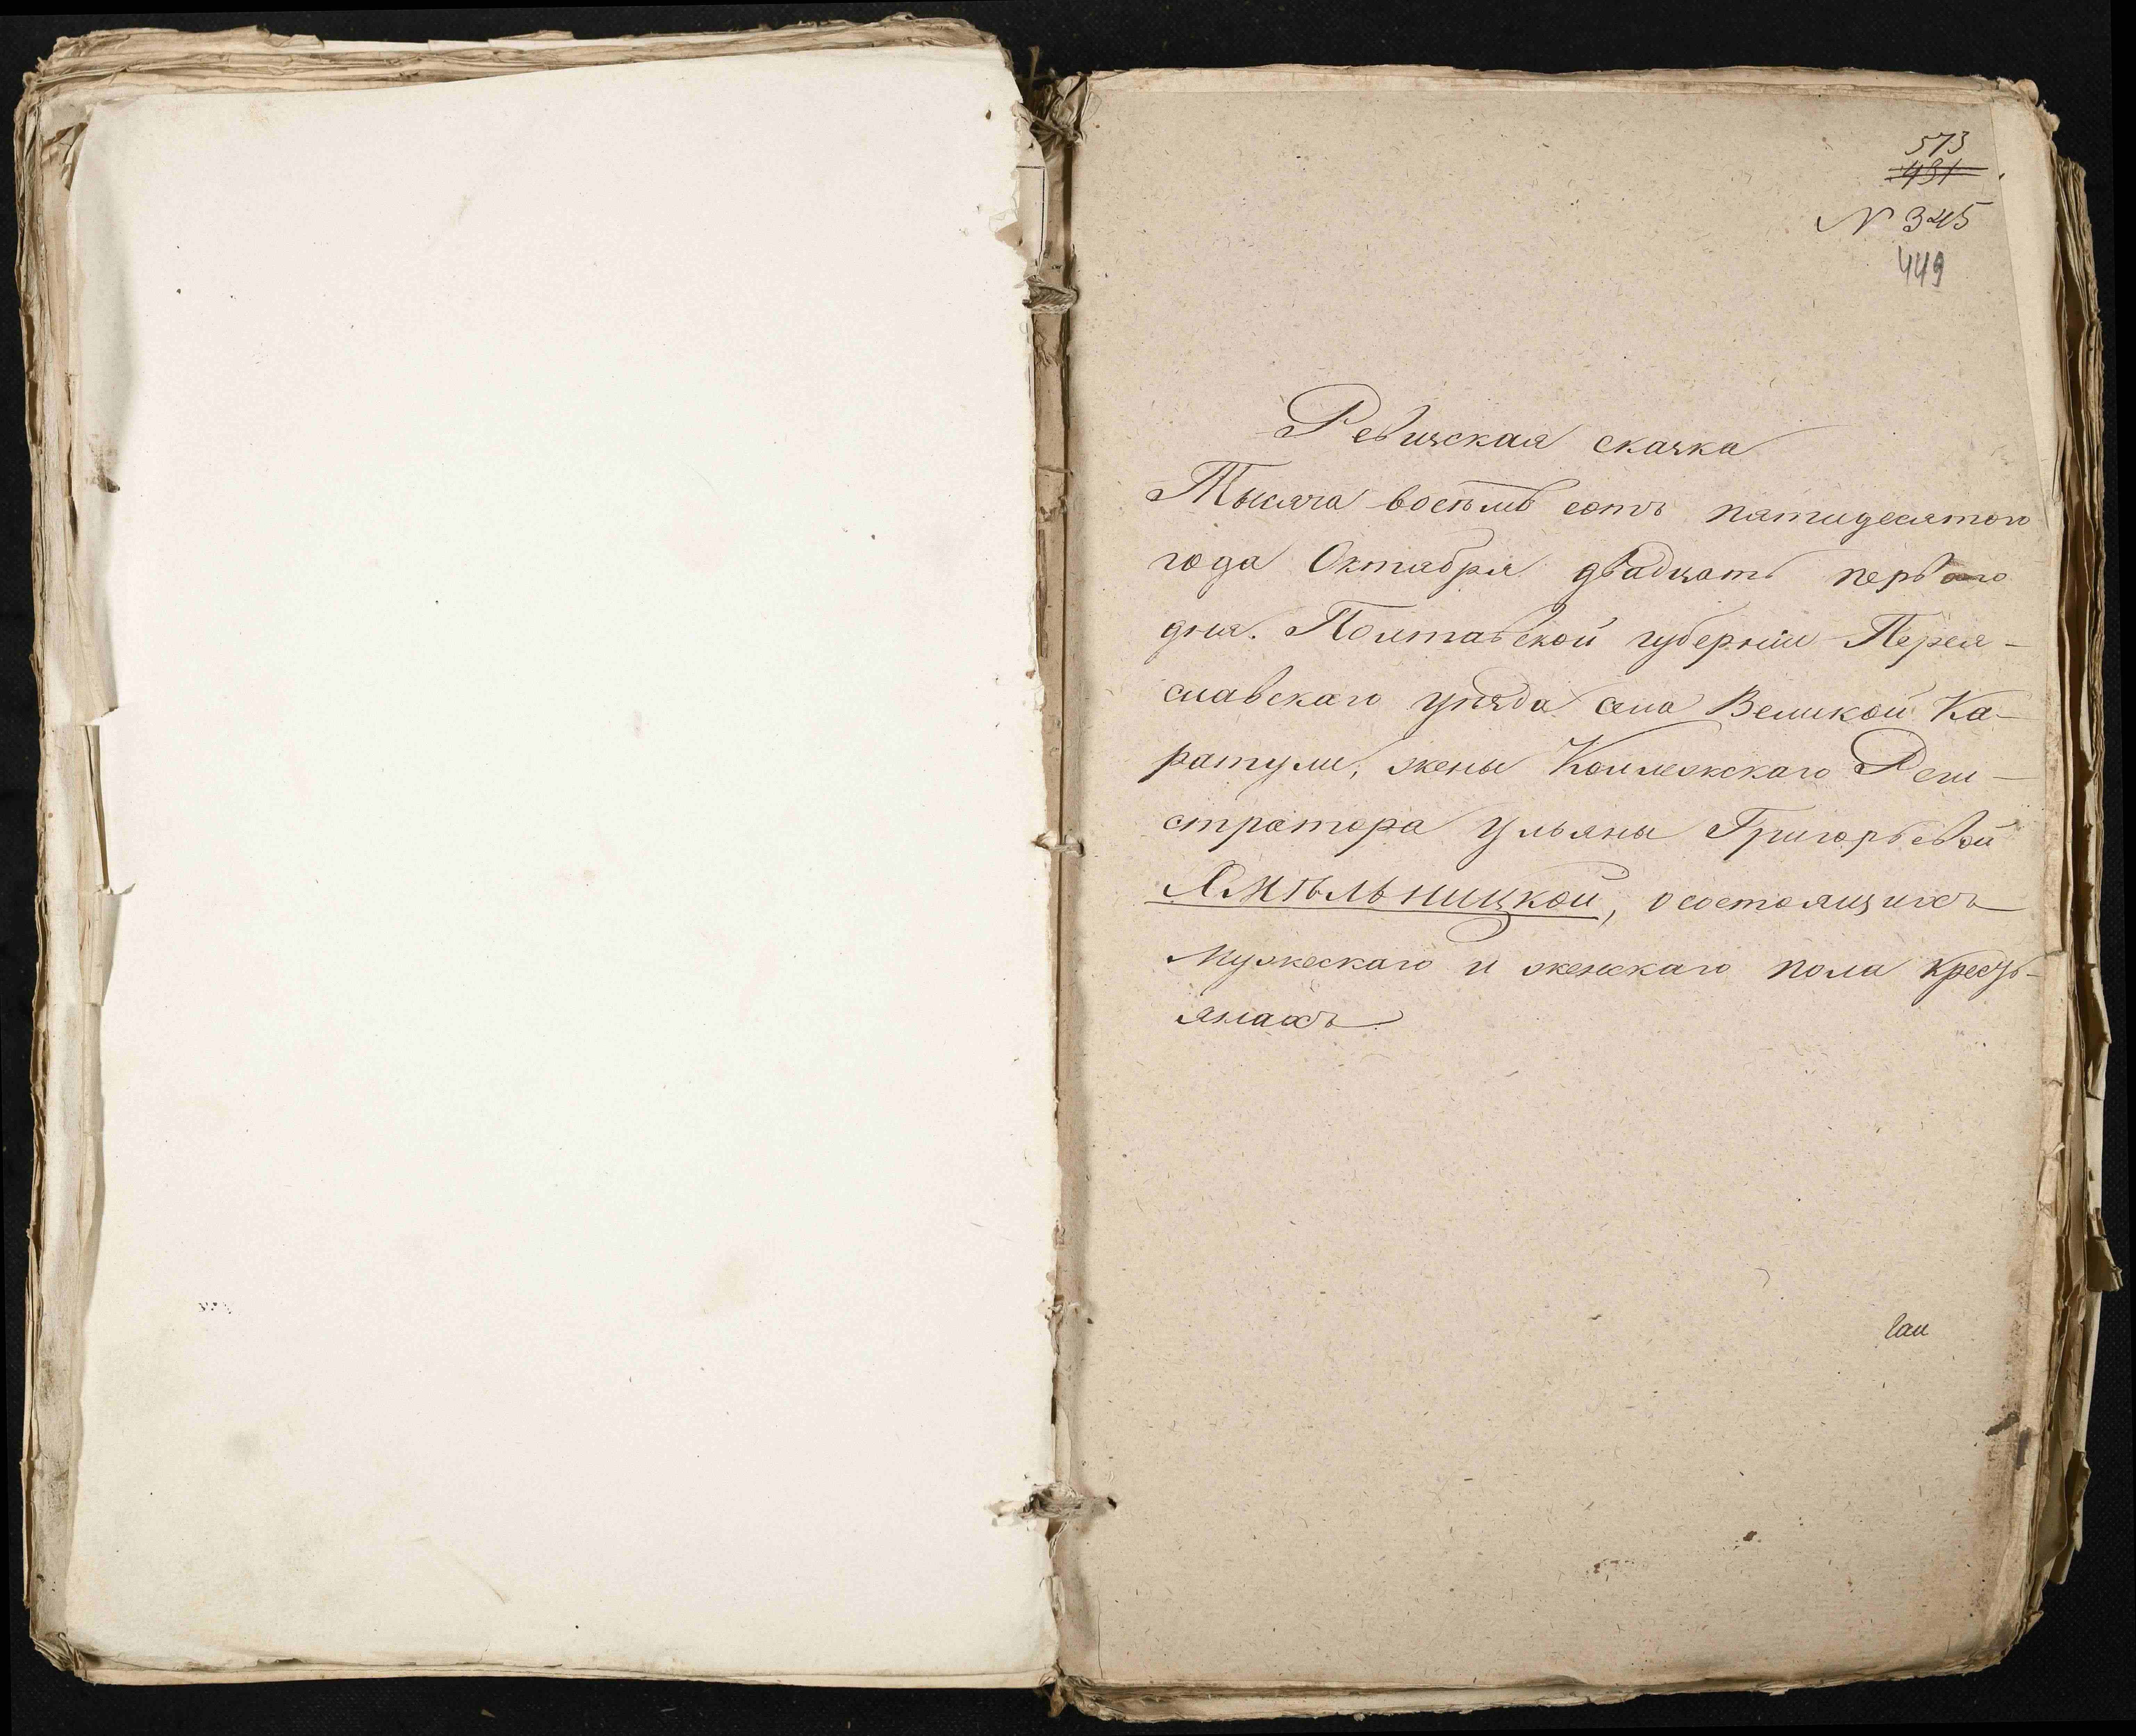 573
491
№ 345
449
Ревизская сказка
Тысяча восемь сотъ пятидесятого
года Октября двадцать первого
дня. Полтавской губерніи Перея-
славскаго уѣзда села Великой Ка-
ратули, жены Коллежскаго Реги-
стратора Ульяны Григорьевой
Хмѣльницкой, о состоящихъ
мужескаго и женскаго пола кресть-
янахъ